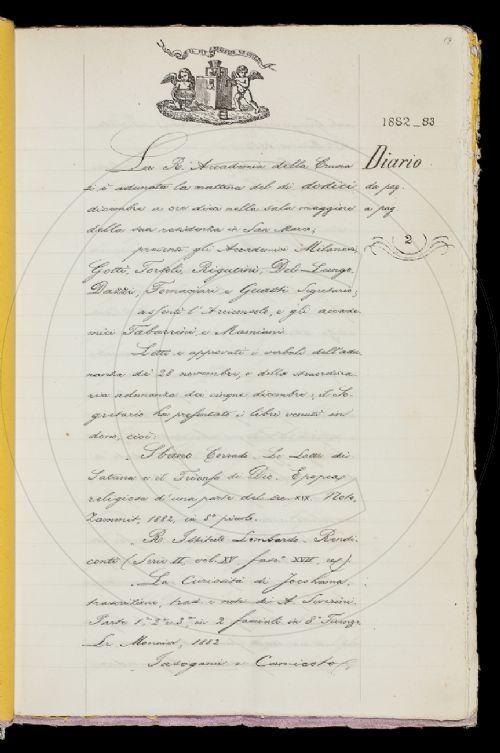 17
1882_83
Diario
da pag.
a pag
2
La R. Accademia della Crusca
si è adunata la mattina del dì dodici
dicembre a ore dieci nella sala maggiore
della sua residenza in San Marco;
presenti gli Accademici Milanesi,
Gotti, Tortoli, Rigutini, Del Lungo,
Dazzi, Tomaciari e Guasti Segretario;
assenti l'Arciconsolo, e gli accade-
mici Tabarrini, e Mamiani.
Letti e approvati i verbali dell'adu-
nanza de' 28 novembre, e della straordina-
ria adunanza dei cinque dicembre; il Se-
gretario ha presentato i libri venuti in
dono, cioè:
Sbano Corrado. Le Lotte di
Satana e il Trionfo di Dio. Epopea
religiosa d'una parte del sec. XIX. Noto,
Zammit, 1882, in 8° picolo.
R. Istituto Lombardo. Rendi-
conti (Serie II, vol. XV fasc. XVII
La Curiosità di Jocohama,
trascrizione, trad. e note di A. Severini.
Parte 1ª 2ª e 3ª, in 2 fascicoli in 8° Firenze
Le Monnier, 1882